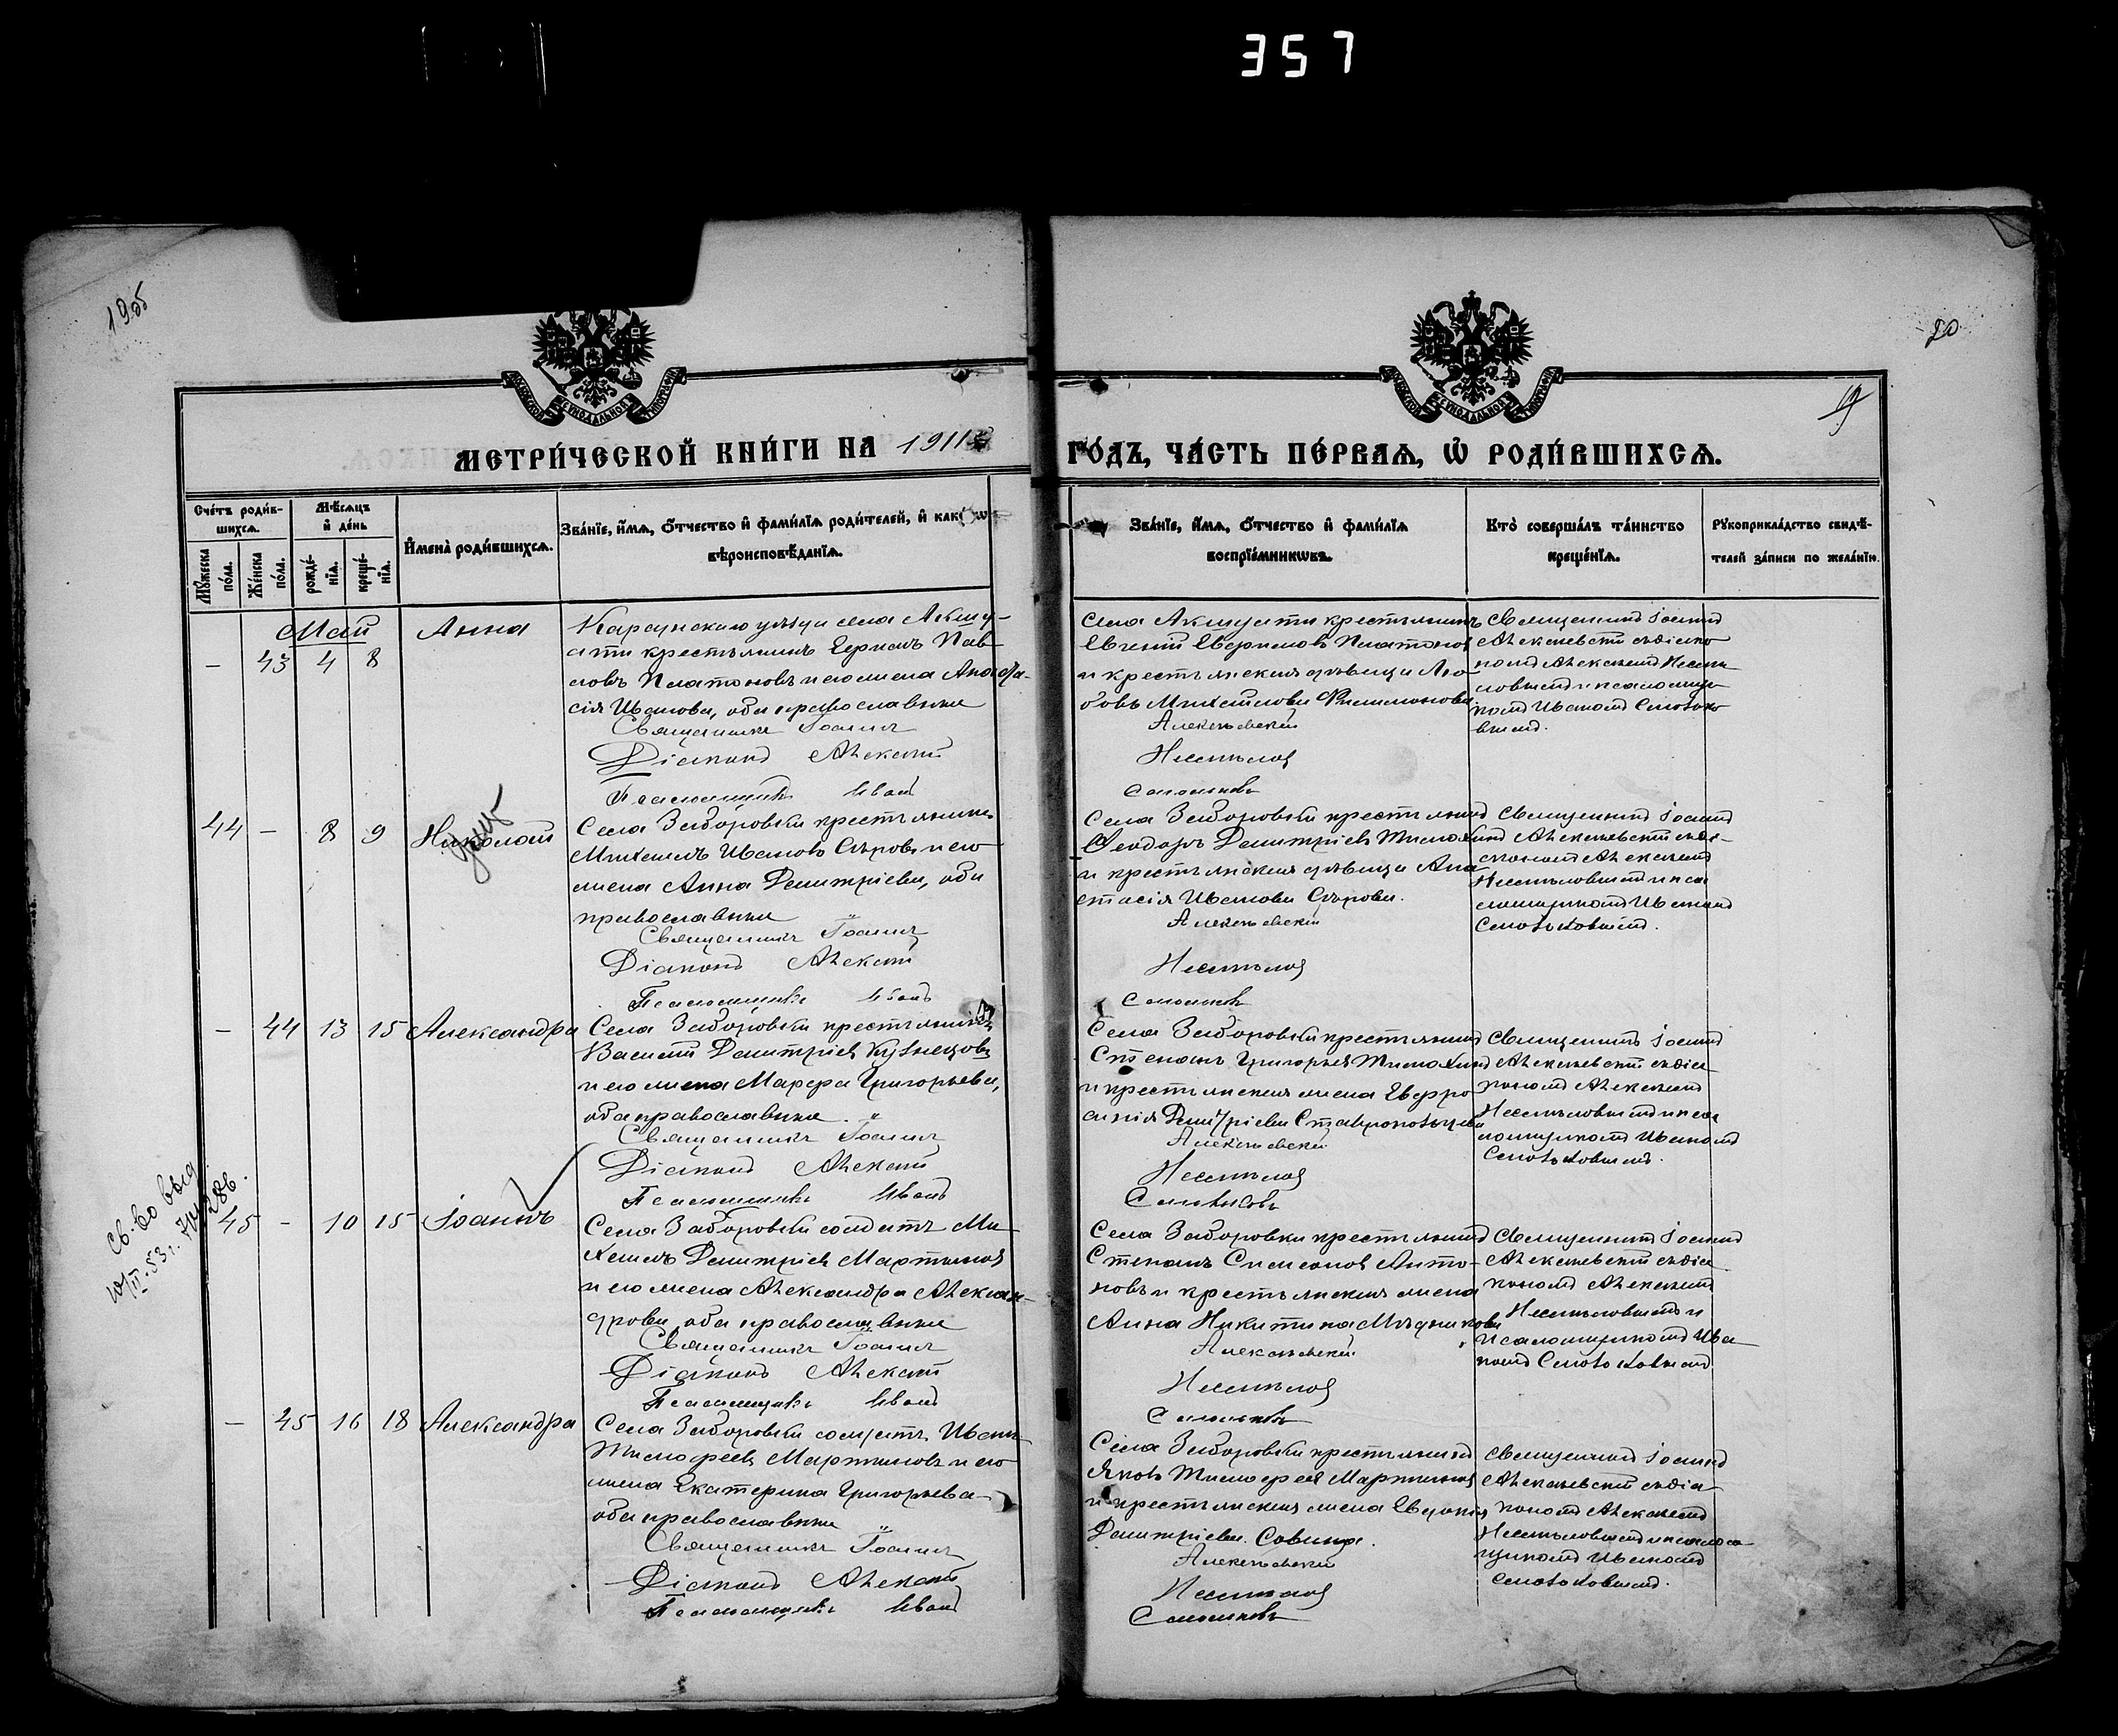 357
19об
20
19
МЕТРИ́ЧЕСКОЙ КНИ́ГИ НА 1911й
ГО́ДЪ, ЧА́СТЬ ПЕ́РВАѦ, Ѡ҆ РОДИ́ВШИХСѦ.
Сче́тъ роди́в-
шихсѧ.
Мѣ́сѧцъ
и҆ де́нь
Мꙋ́жеска
по́ла.
Же́нска
по́ла.
рожде́-
нїѧ.
креще́-
нїѧ.
И҆мена̀ роди́вшихсѧ.
Зва́нїе, и҆́мѧ, ѻ҆́тчество и҆ фами́лїѧ роди́телей, и҆ како́гѡ
вѣроисповѣ́данїѧ.
Зва́нїе, и҆́мѧ, ѻ҆́тчество и҆ фами́лїѧ
воспрїе́мникѡвъ.
Кто̀ соверша́лъ та́инство
креще́нїѧ.
Рꙋкоприкла́дство свидѣ́-
телей за́писи по жела́нїю.
Май
— 43 4 8
Анна
Карсунскаго уѣзда села Акшу-
ати крестьянинъ Герман Пав-
ловъ Платоновъ и его жена Анаста-
сія Иванова, оба православные
Священникъ Іоаннъ
Діаконъ Алексѣй
Псаломщикъ Иванъ
Села Акшуати крестьянинъ
Евгеній Платонов
и крестьянская дѣвица Лю-
бовь Михайлова Филимонова
Алексѣевскій
Несмѣлов
Священникъ Іоаннъ
Алексѣевскій съ діако-
номъ Алексѣемъ Несмѣ-
ловымъ и псаломщи-
комъ Иваномъ
44 — 8 9
Николай
Села Заборовки крестьянинъ
Михаилъ Иванов Сѣровъ и его
жена Анна Димитріева, оба
православные
Священникъ Іоаннъ
Діаконъ Алексѣй
Псаломщикъ Иванъ
Села Заборовки крестьянинъ
Ѳеодоръ Димитріев Тимохинъ
и крестьянская дѣвица Ана-
стасія Иванова Сѣрова.
Алексѣевскій
Несмѣлов
Священникъ Іоаннъ
Алексѣевскій съ діа-
кономъ Алексѣемъ
Несмѣловымъ и пса-
ломщикомъ Иваномъ
— 44 13 15
Александра
Села Заборовки крестьянинъ
Василій Димитріев Кузнецовъ
и его жена Марфа Григорьева,
оба православные.
Священникъ Іоаннъ
Діаконъ Алексѣй
Псаломщикъ Иванъ
Села Заборовки крестьянинъ
Степанъ Григорьев Тимохинъ
и крестьянская жена Евфро-
синія Димитріева
Алексѣевскій
Несмѣлов
Священникъ Іоаннъ
Алексѣевскій съ діа-
кономъ Алексѣемъ
Несмѣловымъ и пса-
ломщикомъ Иваномъ
Св-во выд.
45 — 10 15
Іоаннъ
Села Заборовки солдатъ Ми-
хаилъ Димитріев Мартынов
и его жена Александра Алексан-
дрова, оба православные
Священникъ Іоаннъ
Діаконъ Алексѣй
Псаломщикъ Иванъ
Села Заборовки крестьянинъ
Степанъ Симеонов Анто-
новъ и крестьянская жена
Анна Никитина Мѣдникова
Алексѣевскій
Несмѣлов
Священникъ Іоаннъ
Алексѣевскій съ діа-
кономъ Алексѣемъ
Несмѣловымъ и
псаломщикомъ Ива-
номъ
— 45 16 18
Александра
Села Заборовки солдатъ Иванъ
Тимофеев Мартыновъ и его
жена Екатерина Григорьева —
оба православные
Священникъ Іоаннъ
Діаконъ Алексѣй
Псаломщикъ Иванъ
Села Заборовки крестьянинъ
Яковъ Тимофеев Мартынов
и крестьянская жена Евдокія
Димитріева Савина.
Алексѣевскій
Несмѣлов
Священникъ Іоаннъ
Алексѣевскій съ діа-
кономъ Алексѣемъ
Несмѣловымъ и псалом-
щикомъ Иваномъ